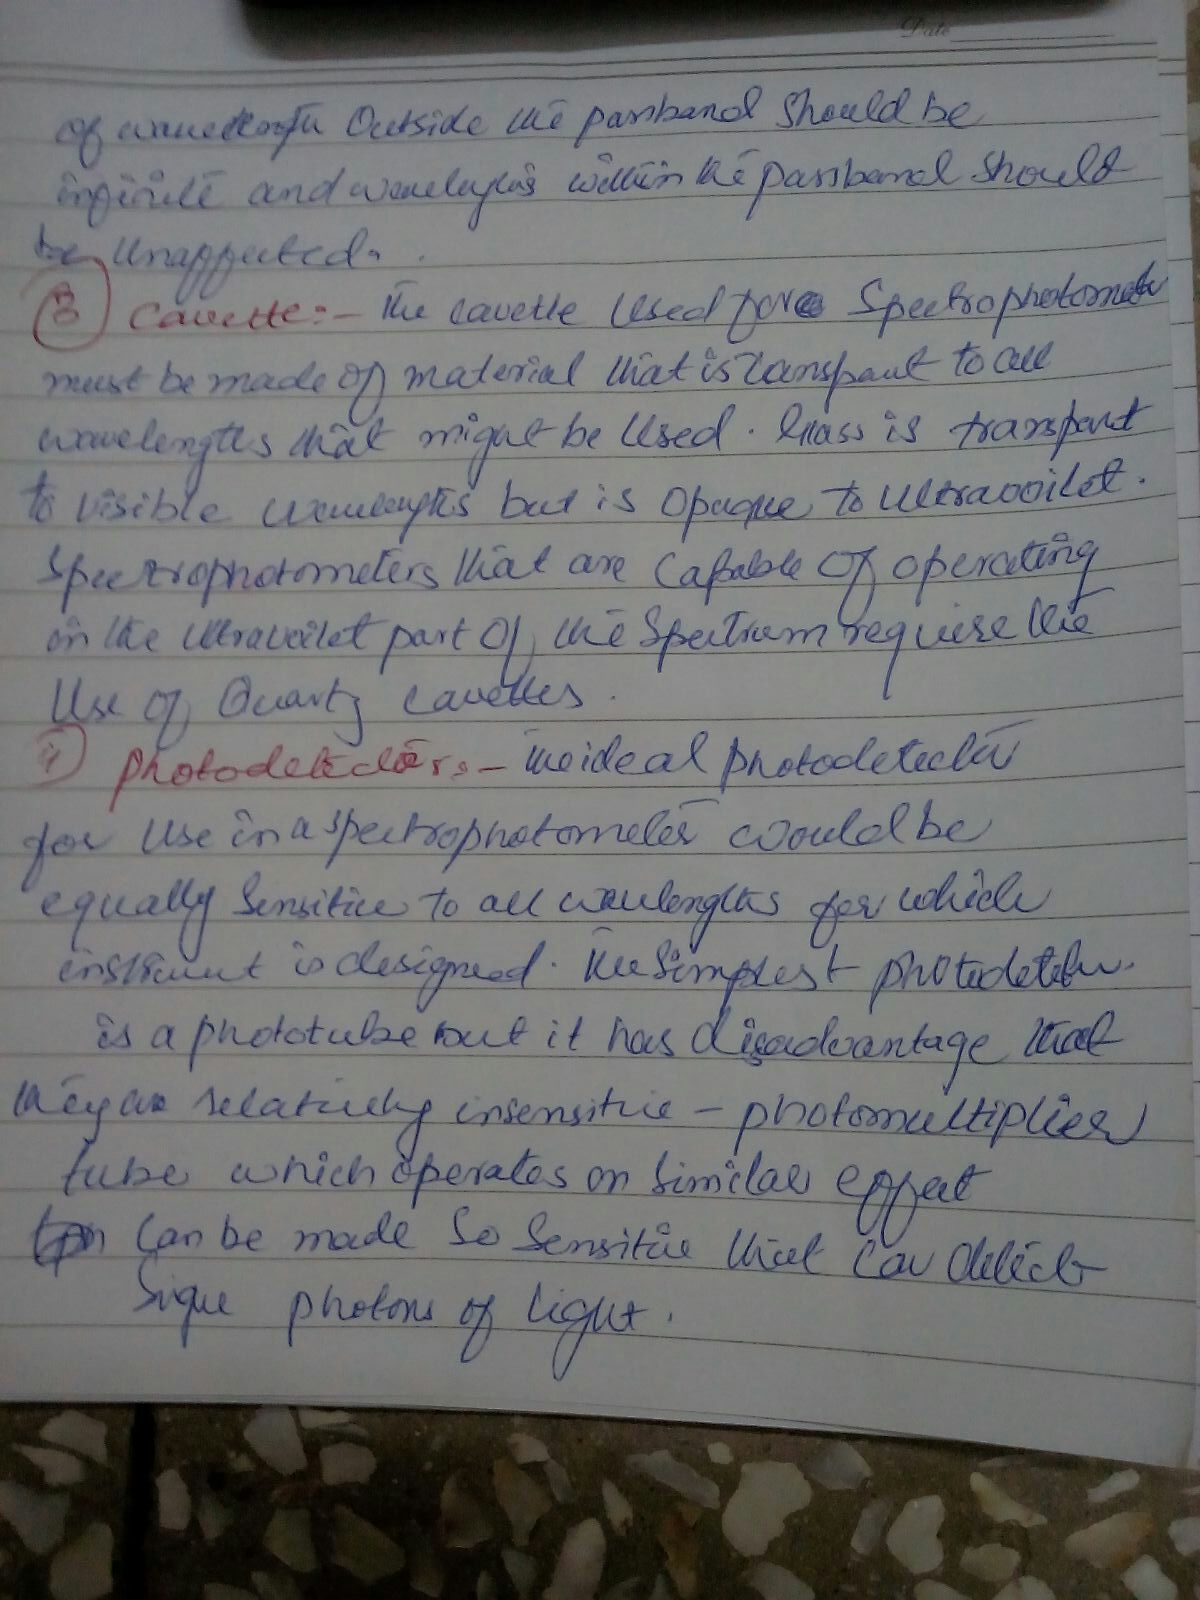 Date
of wavelength Outside the passband should be
infinite and wavelengths within the passband should
be Unaffected.
3 Cavette:- The cavette Used for Spectrophotometer
must be made of material that is transpant to all
wavelengths that might be Used. Glass is transpant
to visible wavelengths but is opaque to ultravoilet.
Spectrophotometers that are Capable Of operating
in the ultravoilet part Of the Spectrum require the
Use Of Quartz cavettes.
4 Photodetectors:- The ideal photodetector
for Use in a spectrophotometer would be
equally Sensitive to all wavelengths for which
instrument is designed. The Simplest photodetector
is a phototube but it has disadvantage that
they are relatively insensitive - photomultiplier
tube which operates on Similar effect
Can be made So Sensitive that can detect
Single photons of light.